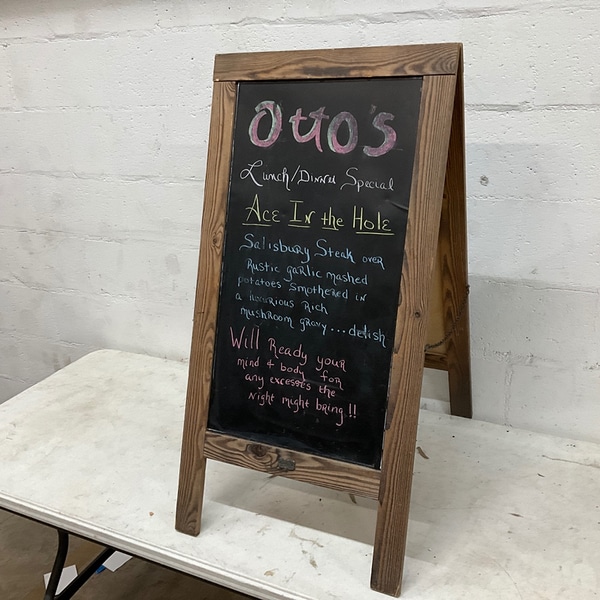 Otto's
Lunch/Dinner Special
Ace In the Hole
Salisbury Steak over
Rustic garlic mashed
potatoes smothered in
a luxurious rich
mushroom gravy...delish
Will Ready your
mind & body for
any excesses the
night might bring!!